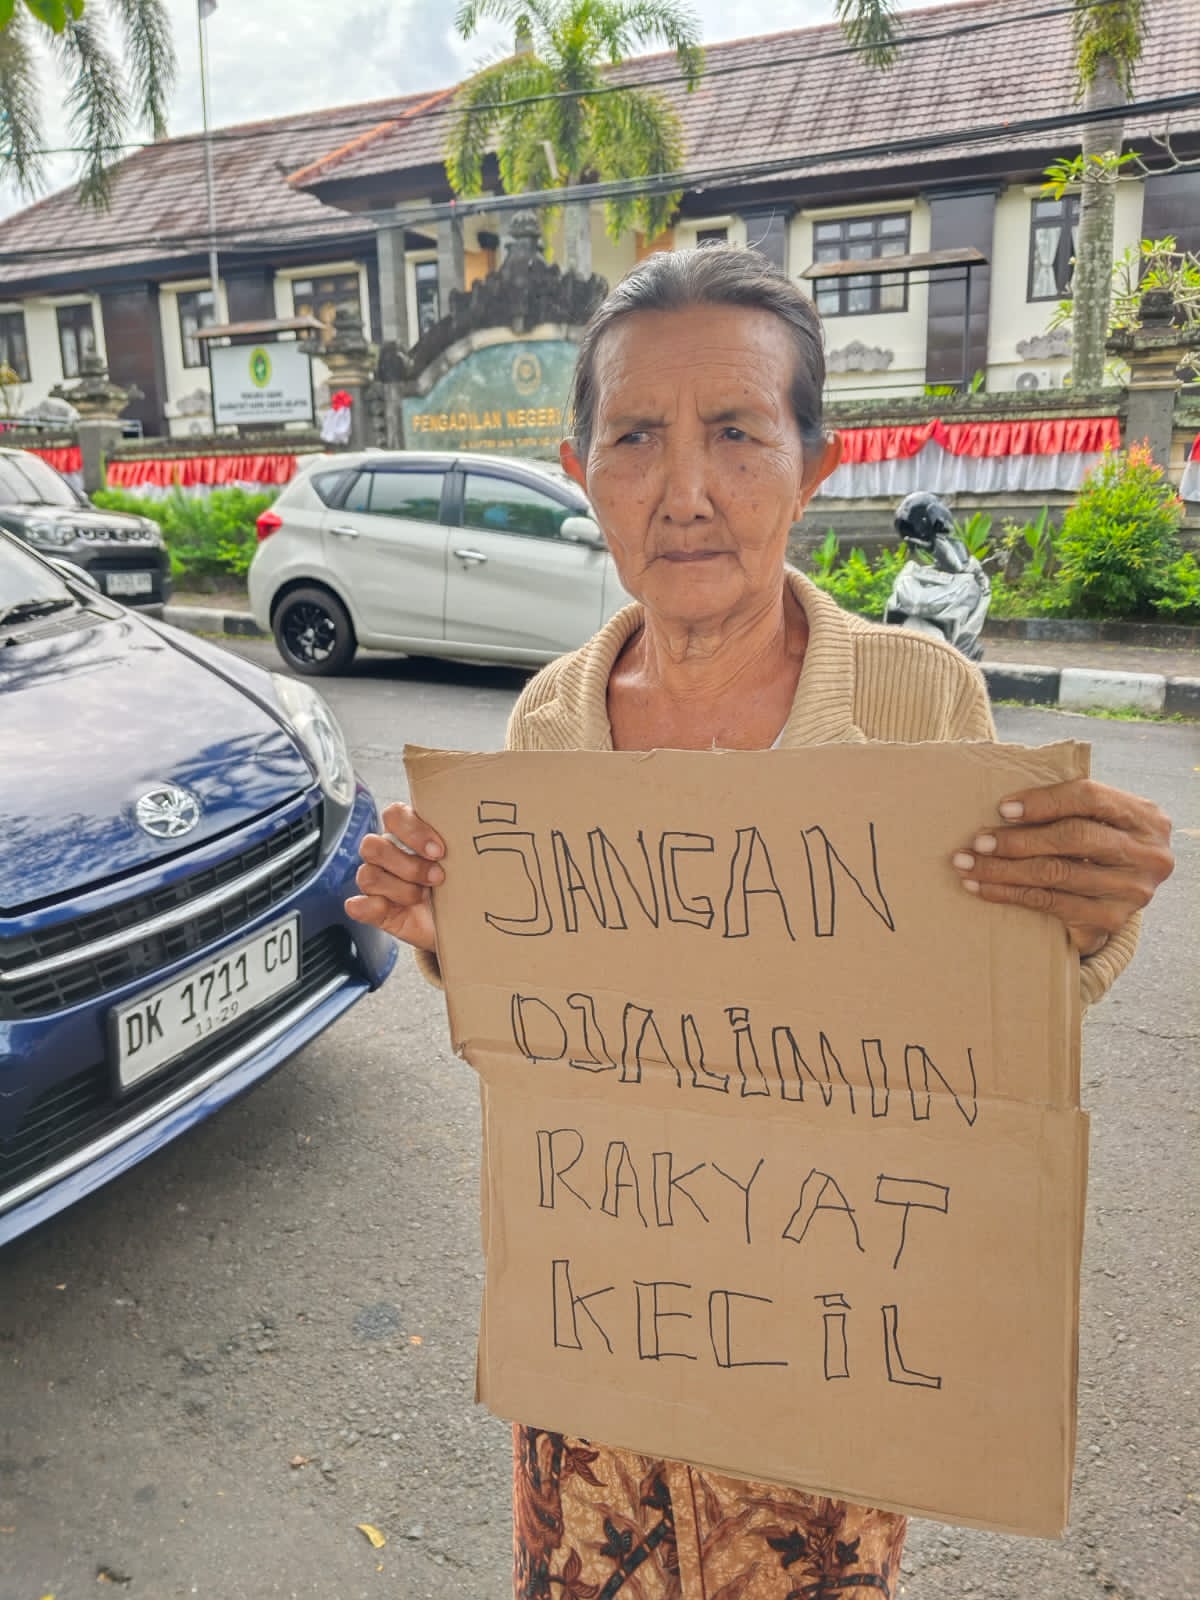 PENGADILAN NEGERI
JANGAN
DJALIMIN
RAKYAT
KECIL
DK 1711 CO
11-29